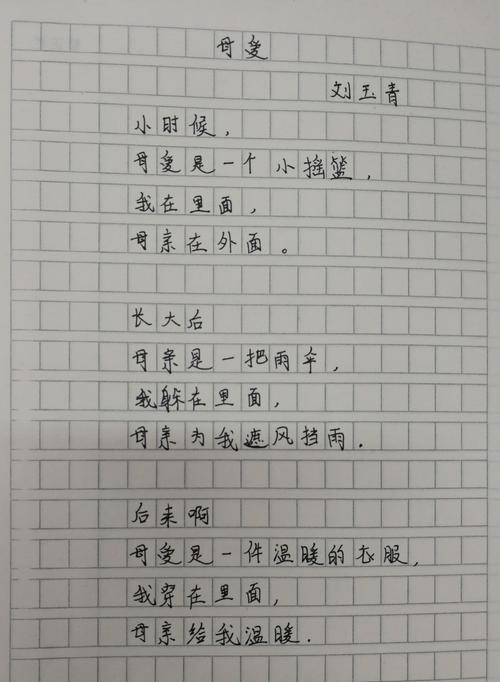 母爱
刘玉青
小时候，
母爱是一个小摇篮，
我在里面，
母亲在外面。
长大后
母亲是一把雨伞，
我躲在里面，
母亲为我遮风挡雨.
后来啊
母爱是一件温暖的衣服，
我穿在里面，
母亲给我温暖.